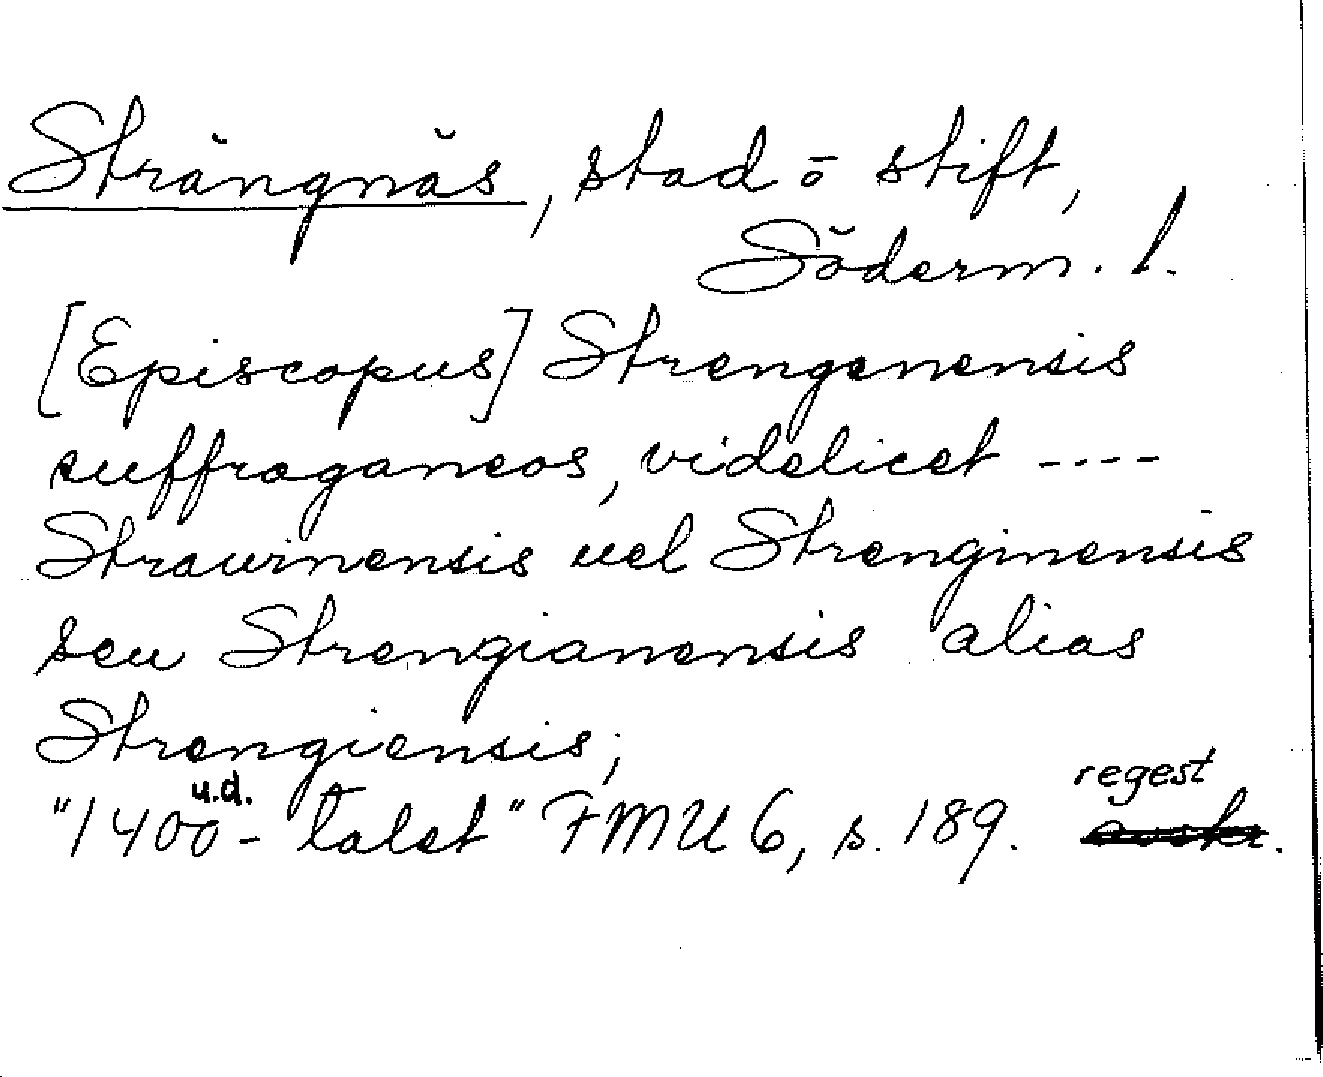 Strängnäs, stad ō stift,
Söderm. l.
[Episcopus] Strengenensis
suffraganeos, videlicet ----
Strauinensis uel Strenginensis
seu Strengianensis alias
Strengiensis;
u.d. regest
"1400-talet" FMU 6, s. 189. avskr.